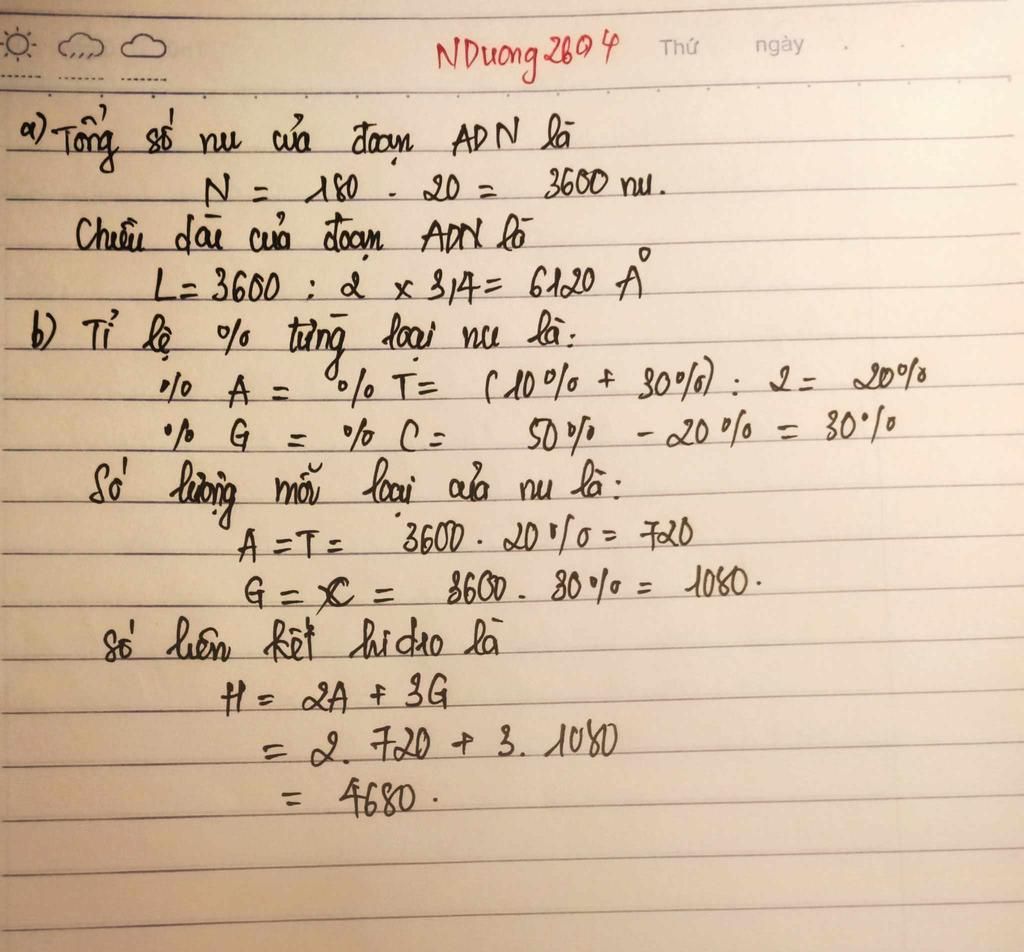 NDuong2604 Thứ ngày
a) Tổng số nu của đoạn ADN là
N = 180 . 20 = 3600 nu.
Chiều dài của đoạn ADN là
L = 3600 : 2 x 3,4 = 6120 Å
b) Tỉ lệ % từng loại nu là:
% A = % T = (10% + 30%) : 2 = 20%
% G = % C = 50% - 20% = 30%
Số lượng mỗi loại của nu là:
A = T = 3600 . 20% = 720
G = C = 3600 . 30% = 1080.
Số liên kết hidro là
H = 2A + 3G
= 2. 720 + 3. 1080
= 4680.